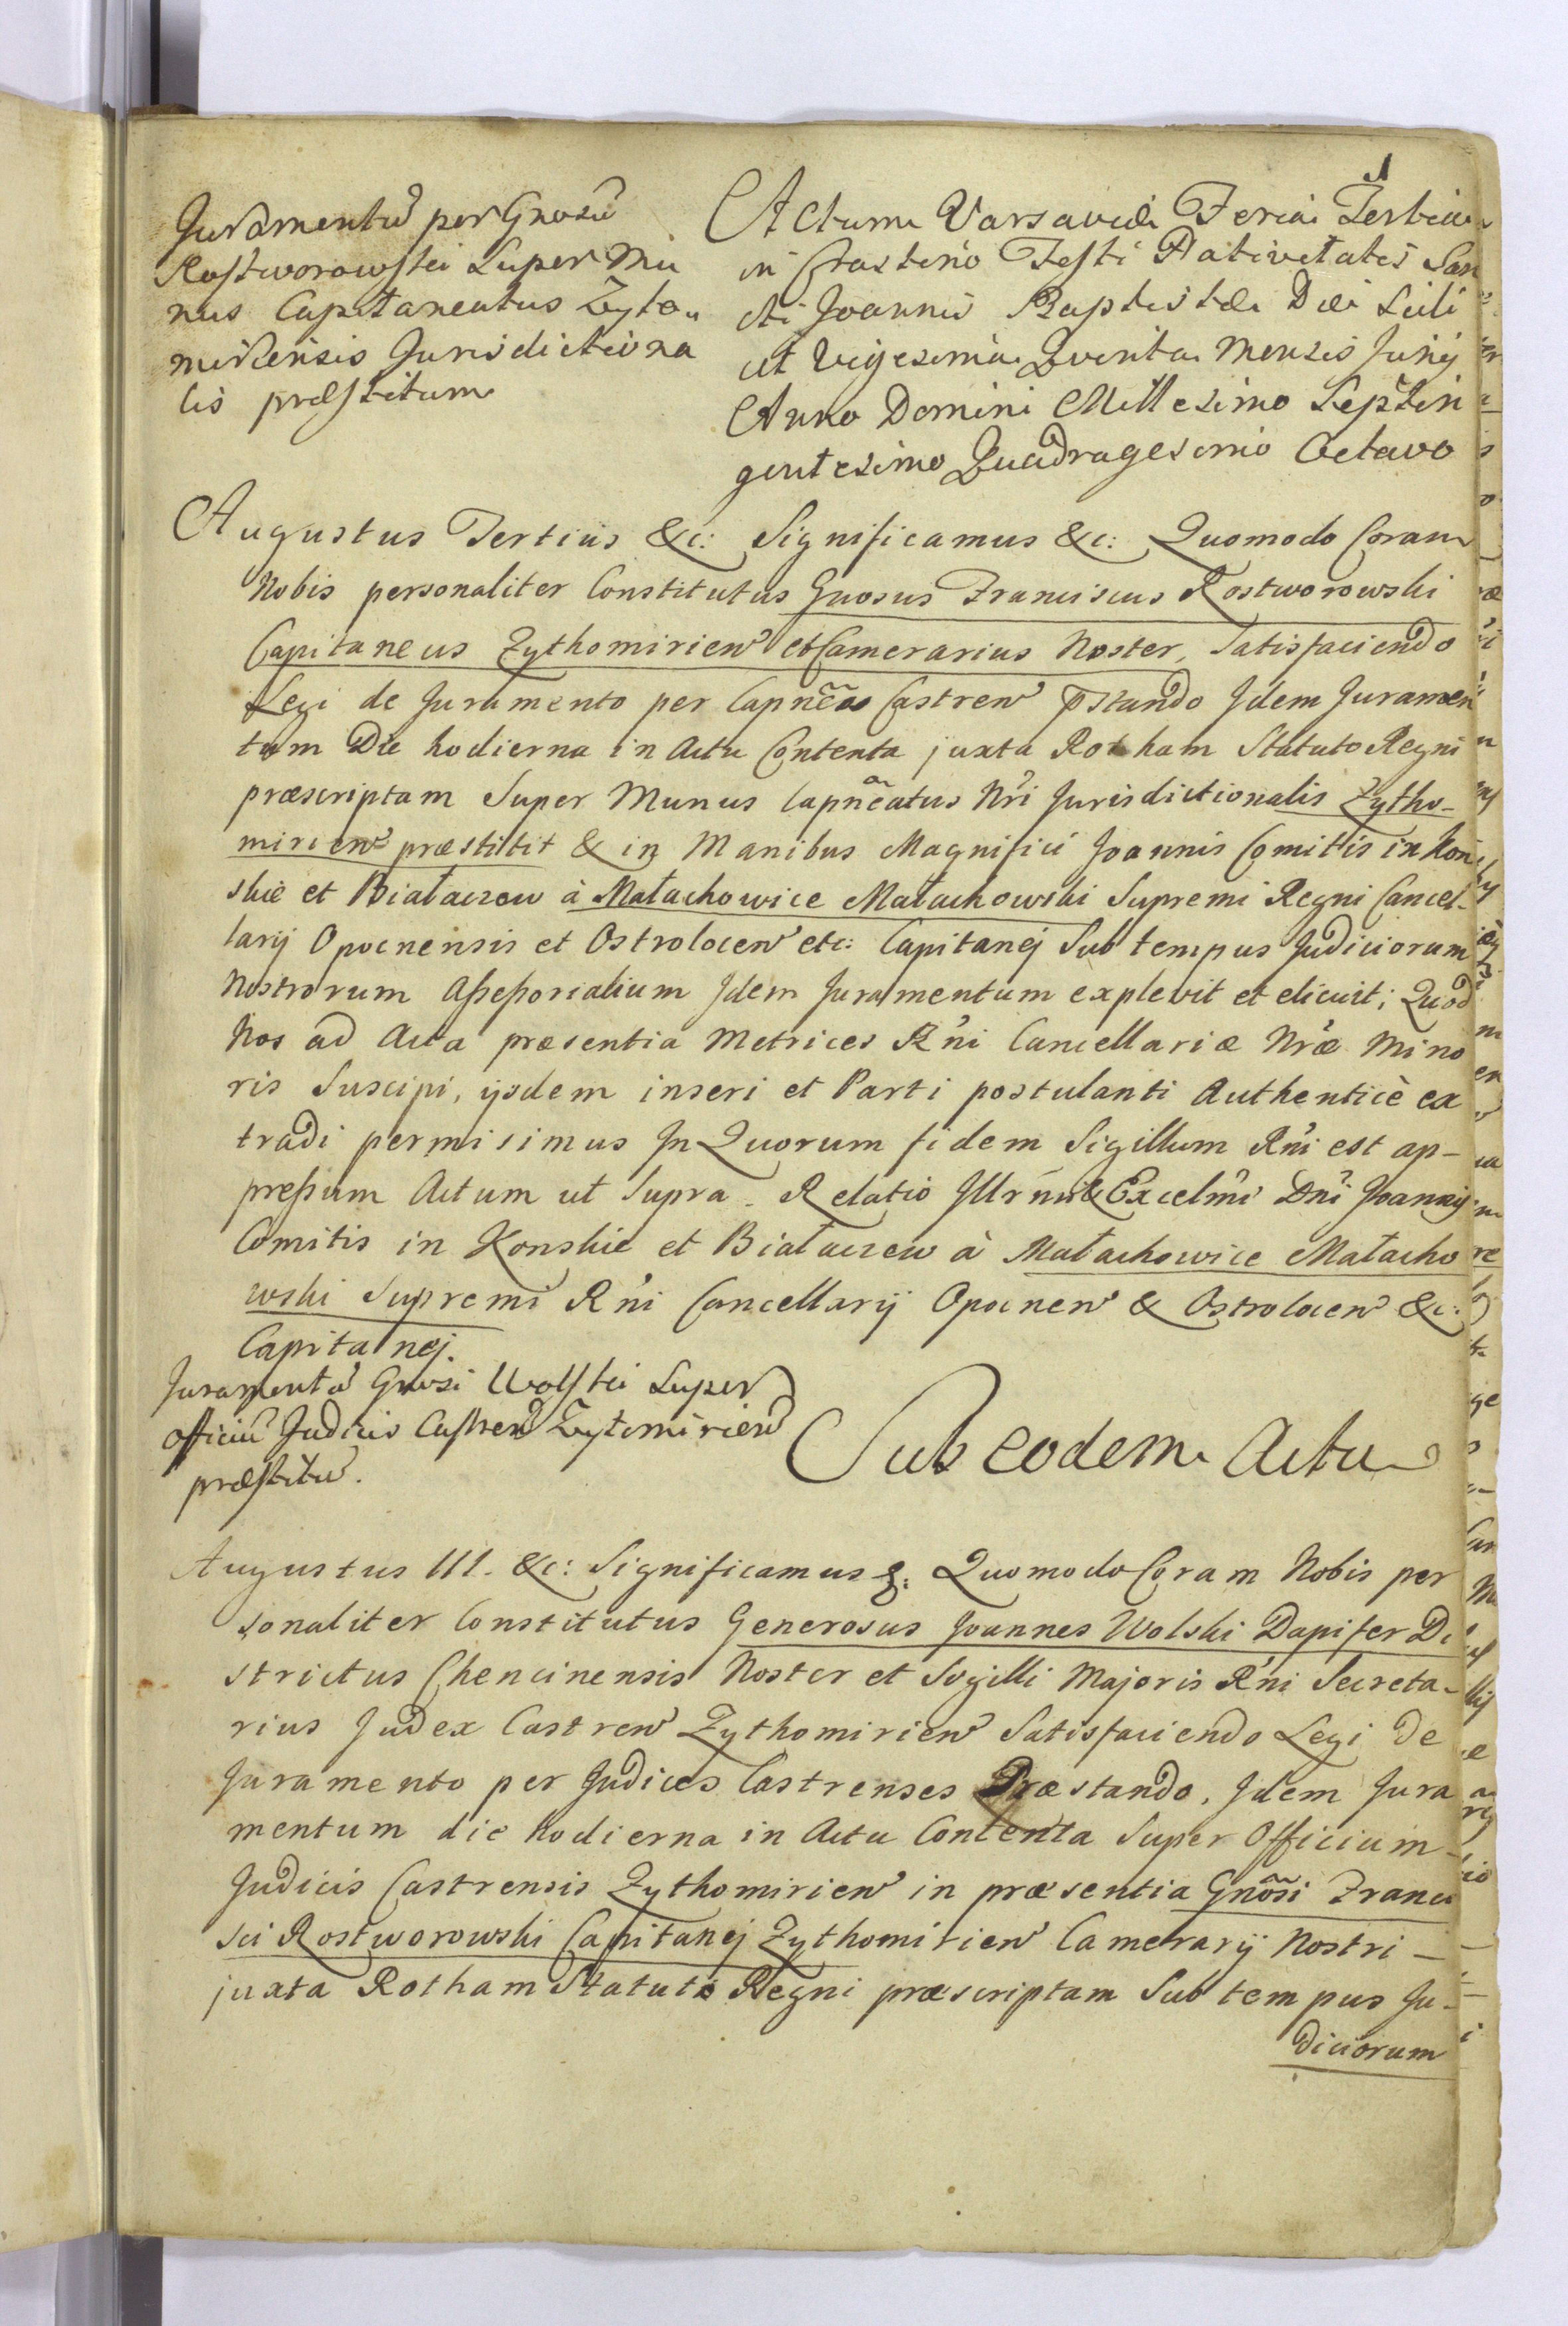 1
Juramentū per Gnosū
Rostworowski Super Mu
nus Capitaneatus Zyto„
miriensis Jurisdictiona
lis præstitum
Actum Varsaviæ Feria Tertia
in Crastino Festi Nativitatis San
cti Joannis Baptistæ Die Scili
cet Vigesima Quinta Mensis Junij
Anno Domini Millesimo Septin
gentesimo Quadragesimo Octavo
Augustus Tertius &c: Significamus &c: Quomodo Coram
Nobis personaliter Constitutus Gnosus Franciscus Rostworowski
Capitaneus Zythomirien et Camerarius Noster, Satisfaciendo
Legi de Juramento per Capneos Castren pstando Idem Juramen
tum Die hodierna in Actu Contenta juxta Rotham Statuto Regni
præscriptam Super Munus Capneatus Nri Jurisdictionalis Zytho-
mirien præstitit & in Manibus Magnifici Joannis Comitis in Kon
skie et Białaczow à Małachowice Małachowski Supremi Regni Cancel-
larij Opocnensis et Ostrolocen etc: Capitanej Sub tempus Judiciorum
Nostrorum Assessorialium Idem Juramentum explevit et elicuit; Quod
Nos ad Acta præsentia Metrices R'ni Cancellariæ Nræ Mino
ris Suscipi, ijsdem inseri et Parti postulanti Authenticè ex
tradi permisimus In Quorum fidem Sigillum Rni est ap-
pressum Actum ut Supra. Relatio Illrmi & Excelmi Dni Joannis
Comitis in Konskie et Białaczew à Małachowice Małacho
wski Supremi R'ni Cancellarij Opocnen & Ostrolocen &c:
Capitanej.
Juramentū Gnosi Wolski Super
officiū Judicis Castren Zytomirien
præstitū.
Sub eodem Actu
Augustus III. &c: Significamus &: Quomodo Coram Nobis per
sonaliter Constitutus Generosus Joannes Wolski Dapifer Di
strictus Chencinensis Noster et Sigilli Majoris R'ni Secreta-
rius Judex Castren Zythomirien Satisfaciendo Legi de
Juramento per Judices Castrenses Præstando, Idem Jura
mentum die hodierna in Actu Contenta Super Officium
Judicis Castrensis Zythomirien in præsentia Gnosi Franci
sci Rostworowski Capitanej Zythomirien Camerarij Nostri –
juxta Rotham Statuto Regni præscriptam Sub tempus Ju-
diciorum